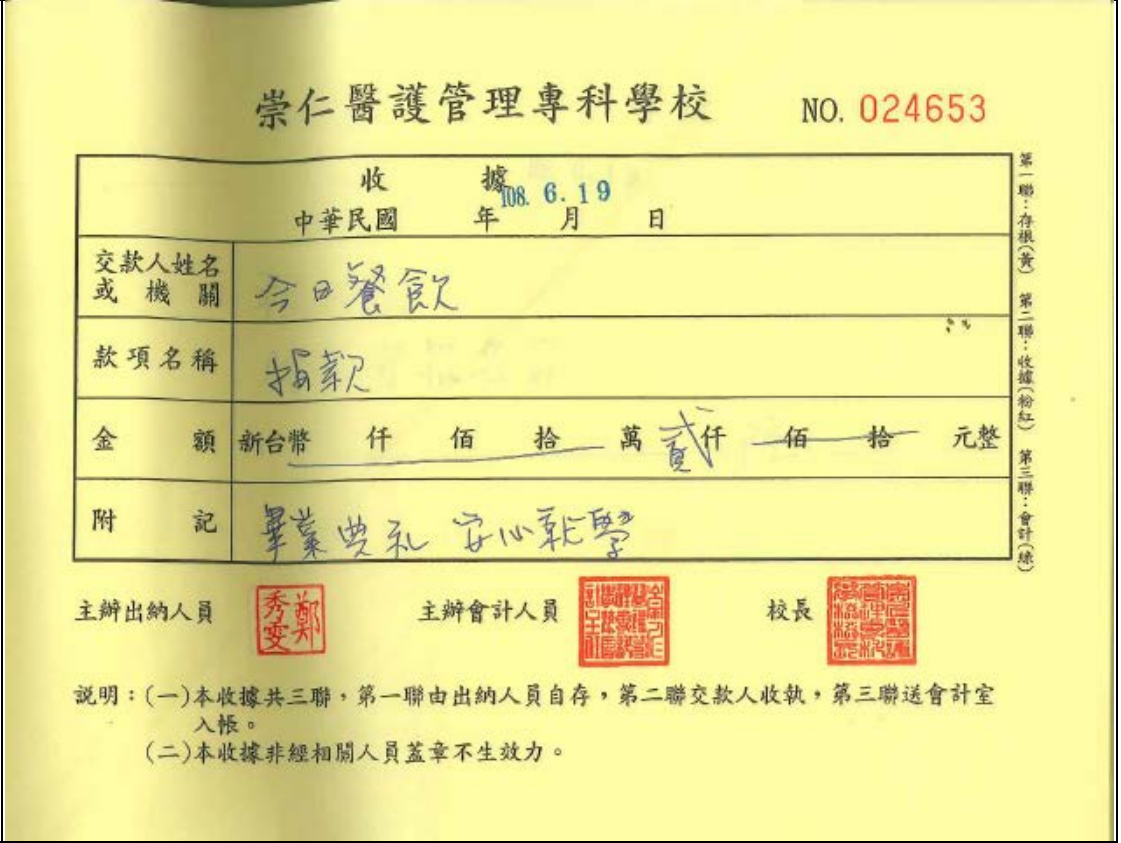 崇仁醫護管理專科學校 NO. 024653
收據
中華民國 年 月 日
108. 6. 19
交款人姓名或機關 今日餐飲
款項名稱 捐款
金額 新台幣 仟 佰 拾 萬 貳仟 佰 拾 元整
附記 畢業典礼 安心就學
主辦出納人員 鄭秀雯 主辦會計人員 校長
説明：(一)本收據共三聯，第一聯由出納人員自存，第二聯交款人收執，第三聯送會計室
入帳。
(二)本收據非經相關人員蓋章不生效力。
第一聯：存根(黃) 第二聯：收據(粉紅) 第三聯：會計(綠)